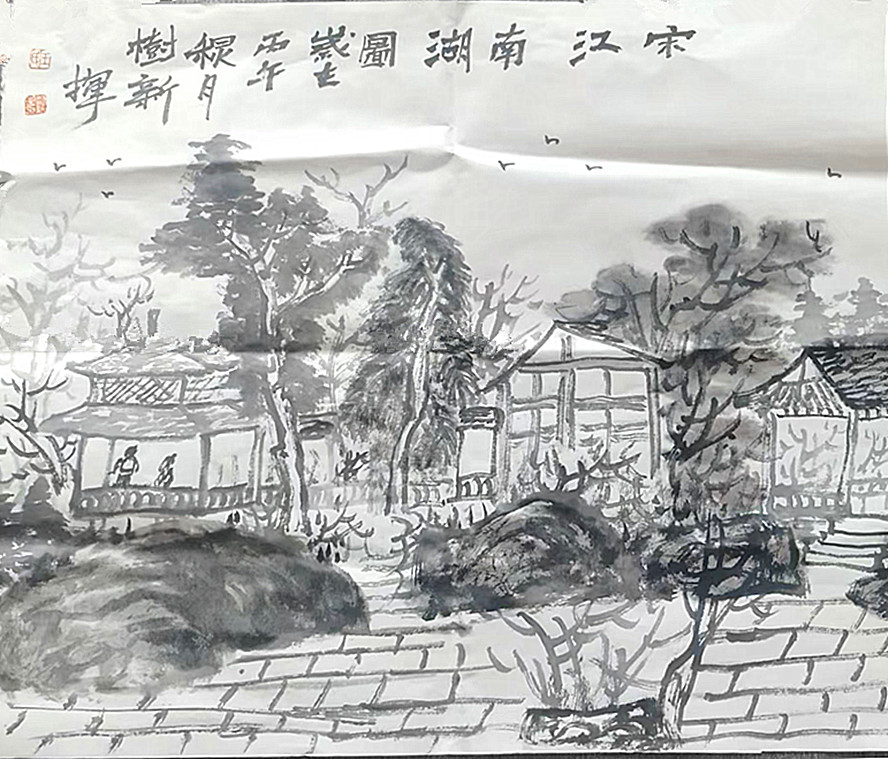 宋江南湖圖
歲在
丙午
月
樹新
揮